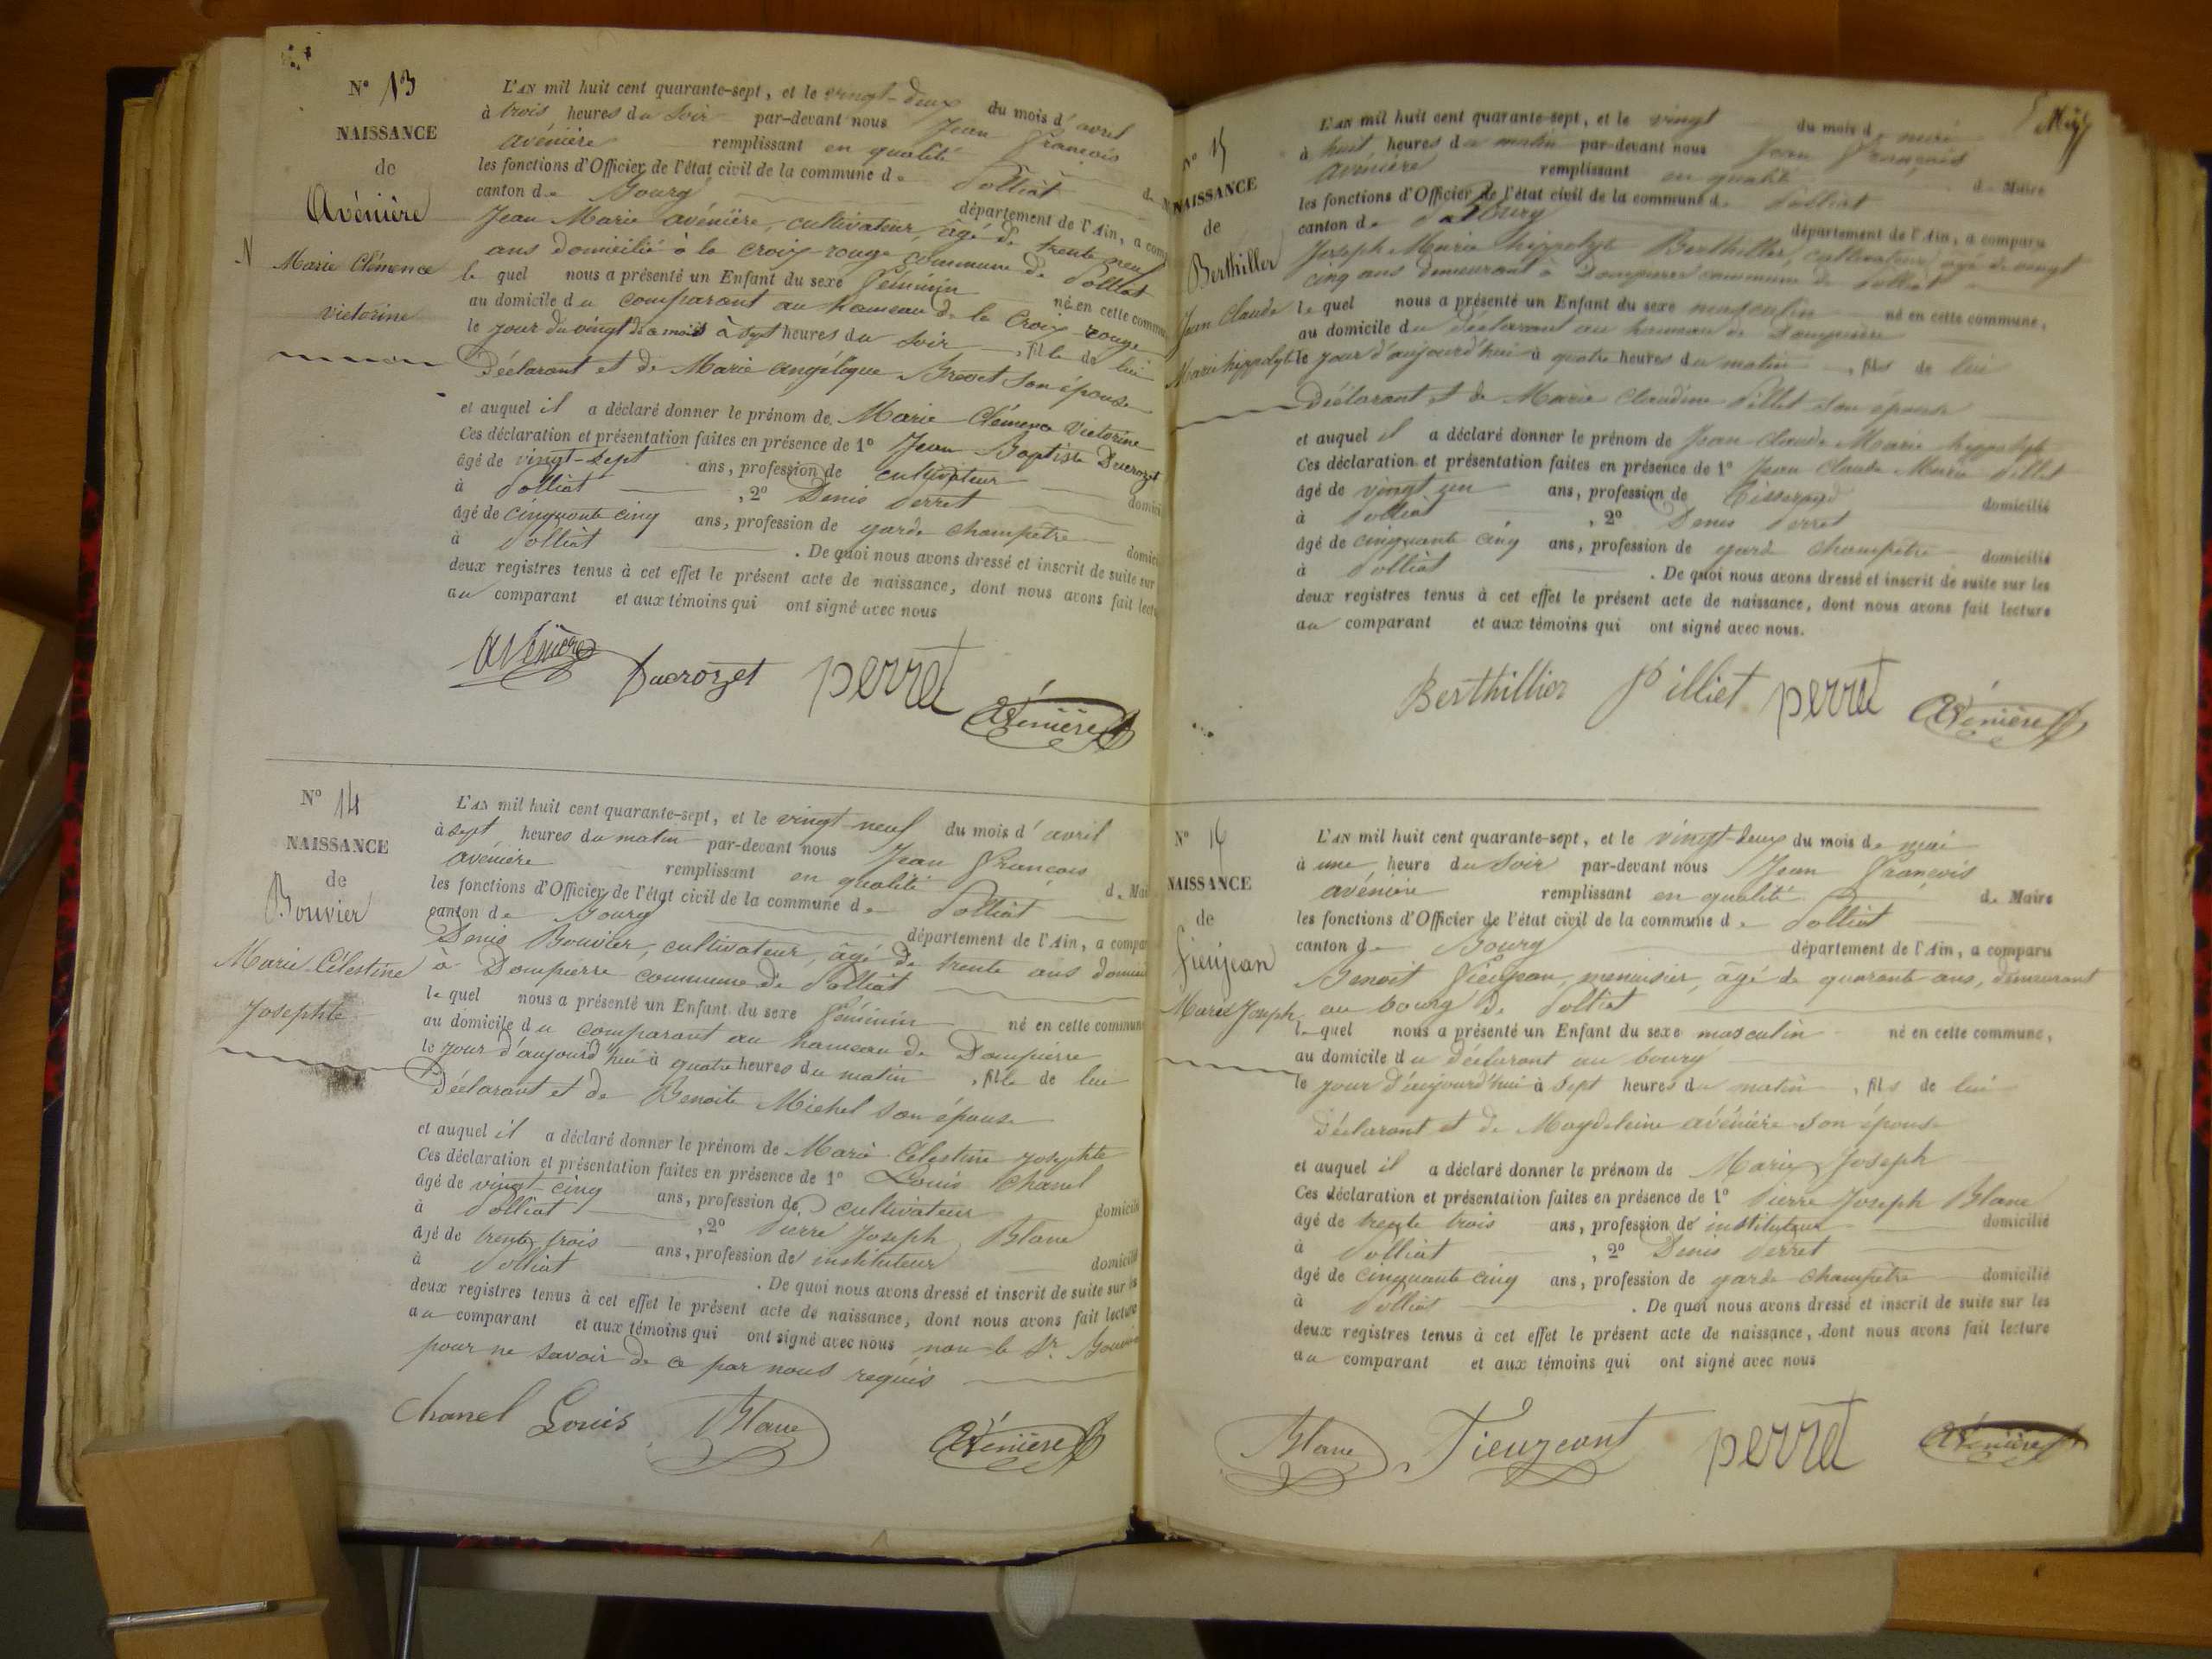 N° 13
NAISSANCE
de
Avénière
N
Marie Clémence
victorine
L'AN mil huit cent quarante-sept, et le vingt-deux du mois d'avril
à trois heures du Soir par-devant nous Jean François
avénière remplissant en qualité
les fonctions d'Officier de l'état civil de la commune de Polliat
canton de Bourg département de l'Ain, a
Jean Marie avénière, cultivateur, âgé de trente neuf
ans domicilié à la croix rouge commune de Polliat
le quel nous a présenté un Enfant du sexe féminin né en cette
au domicile du comparant au hameau de la Croix-rouge
le jour du vingt du mois à sept heures du soir, fille de lui
Déclarant et de Marie angélique Brevet son épouse
et auquel il a déclaré donner le prénom de Marie Clémence Victorine
Ces déclaration et présentation faites en présence de 1° Jean Baptiste Ducrozet
âgé de vingt-sept ans, profession de cultivateur
à Polliat, 2° Denis Perret
âgé de cinquante cinq ans, profession de garde champêtre
à Polliat. De quoi nous avons dressé et inscrit de suite sur
deux registres tenus à cet effet le présent acte de naissance, dont nous avons fait
au comparant et aux témoins qui ont signé avec nous
Avénière Ducrozet perret Avénière
N° 14
NAISSANCE
de
Bouvier
Marie Célestine
Josephte
L'AN mil huit cent quarante-sept, et le vingt-neuf du mois d'avril
à sept heures du matin par-devant nous Jean François
avénière remplissant en qualité de
les fonctions d'Officier de l'état civil de la commune de Polliat
canton de Bourg département de l'Ain, a
Denis Bouvier, cultivateur, âgé de trente ans
à Dompierre commune de Polliat
le quel nous a présenté un Enfant du sexe féminin né en cette
au domicile du comparant au hameau de Dompierre
le jour d'aujourd'hui à quatre heures du matin, fille de lui
Déclarant et de Benoite Michel son épouse
et auquel il a déclaré donner le prénom de Marie Célestine Josephte
Ces déclaration et présentation faites en présence de 1° Louis Chanel
âgé de vingt-cinq ans, profession de cultivateur domicilié
à Polliat, 2° Pierre Joseph Blanc
âgé de trente trois ans, profession de instituteur domicilié
à Polliat. De quoi nous avons dressé et inscrit de suite sur les
deux registres tenus à cet effet le présent acte de naissance, dont nous avons fait lecture
au comparant et aux témoins qui ont signé avec nous non le Sr. Bouvier
pour ne savoir de ce par nous requis
Chanel Louis Blanc Avénière
N° 15
NAISSANCE
de
Berthiller
Jean Claude
Marie hippolyte
L'AN mil huit cent quarante-sept, et le vingt du mois de mai
à huit heures du matin par-devant nous Jean François
avénière remplissant en qualité de Maire
les fonctions d'Officier de l'état civil de la commune de Polliat
canton de Bourg département de l'Ain, a comparu
Joseph Marie hippolyte Berthiller, cultivateur, âgé de vingt
cinq ans demeurant à Dompierre commune de Polliat
le quel nous a présenté un Enfant du sexe masculin né en cette commune,
au domicile du déclarant au hameau de Dompierre
le jour d'aujourd'hui à quatre heures du matin, fils de lui
Déclarant et de Marie Claudine Pillet son épouse
et auquel il a déclaré donner le prénom de Jean Claude Marie hippolyte
Ces déclaration et présentation faites en présence de 1° Jean Claude Marie Pillet
âgé de vingt un ans, profession de Tisserand domicilié
à Polliat, 2° Denis Perret
âgé de cinquante cinq ans, profession de garde champêtre domicilié
à Polliat. De quoi nous avons dressé et inscrit de suite sur les
deux registres tenus à cet effet le présent acte de naissance, dont nous avons fait lecture
au comparant et aux témoins qui ont signé avec nous.
Berthillier Pilliet perret Avénière
N° 16
NAISSANCE
de
Fieujean
Marie Joseph
L'AN mil huit cent quarante-sept, et le vingt-deux du mois de mai
à une heure du Soir par-devant nous Jean François
avénière remplissant en qualité de Maire
les fonctions d'Officier de l'état civil de la commune de Polliat
canton de Bourg département de l'Ain, a comparu
Benoit Fieujean, menuisier, âgé de quarante ans, demeurant
au bourg de Polliat
le quel nous a présenté un Enfant du sexe masculin né en cette commune,
au domicile du déclarant au bourg
le jour d'aujourd'hui à sept heures du matin, fils de lui
déclarant et de Magdeleine avénière son épouse
et auquel il a déclaré donner le prénom de Marie Joseph
Ces déclaration et présentation faites en présence de 1° Pierre Joseph Blanc
âgé de trente trois ans, profession de instituteur domicilié
à Polliat, 2° Denis Perret
âgé de cinquante cinq ans, profession de garde champêtre domicilié
à Polliat. De quoi nous avons dressé et inscrit de suite sur les
deux registres tenus à cet effet le présent acte de naissance, dont nous avons fait lecture
au comparant et aux témoins qui ont signé avec nous
Blanc Fieuzeant perret Avénière